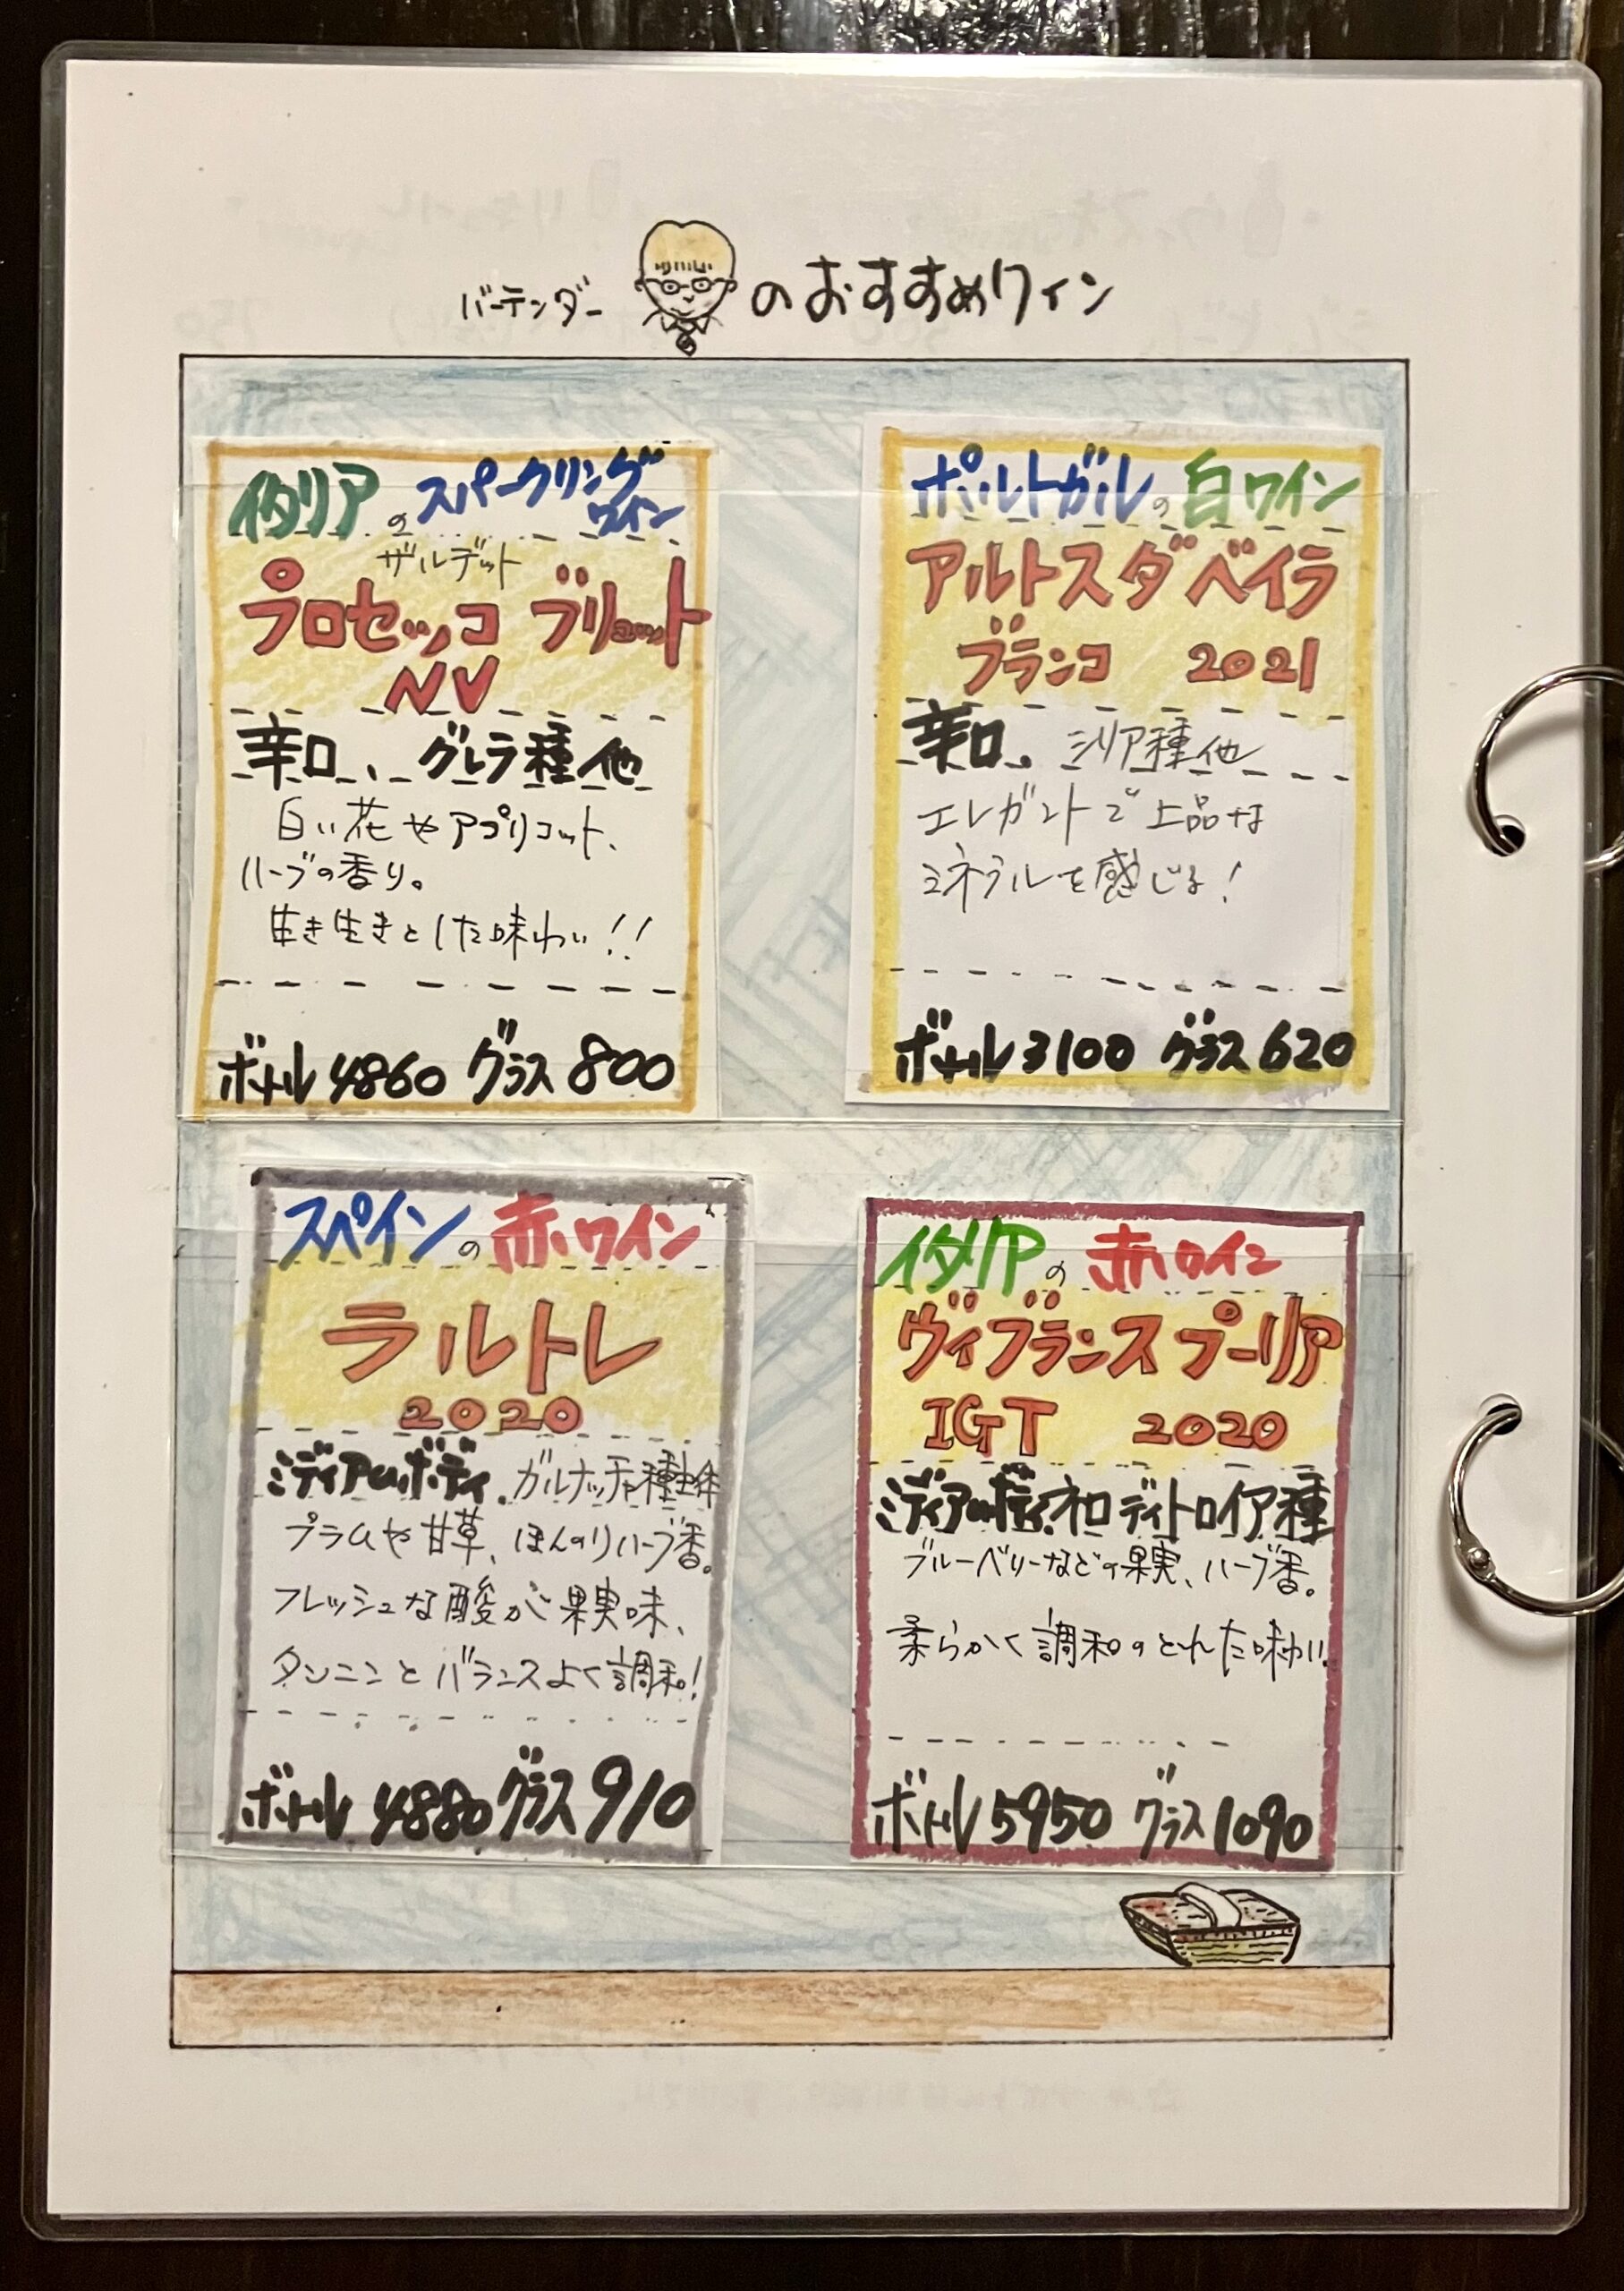 バーテンダー のおすすめワイン
イタリアのスパークリング
ワイン
ザルデット
プロセッコ ブリュット
NV
辛口、グレラ種他
白い花やアプリコット、
ハーブの香り。
生き生きとした味わい!!
ボトル4860 グラス800
ポルトガルの白ワイン
アルトスダベイラ
ブランコ 2021
辛口。シリア種他
エレガントで上品な
ミネラルを感じる!
ボトル3100 グラス620
スペインの赤ワイン
ラルトレ
2020
ミディアムボディ.ガルナッチャ種主体
プラムや甘草、ほんのりハーブ香。
フレッシュな酸が果実味、
タンニンとバランスよく調和!
ボトル4880 グラス910
イタリアの赤ワイン
ヴィブランス プーリア
IGT 2020
ミディアムボディ.ネロ ディ トロイア種
ブルーベリーなどの果実、ハーブ香。
柔らかく調和のとれた味わい.
ボトル5950 グラス1090